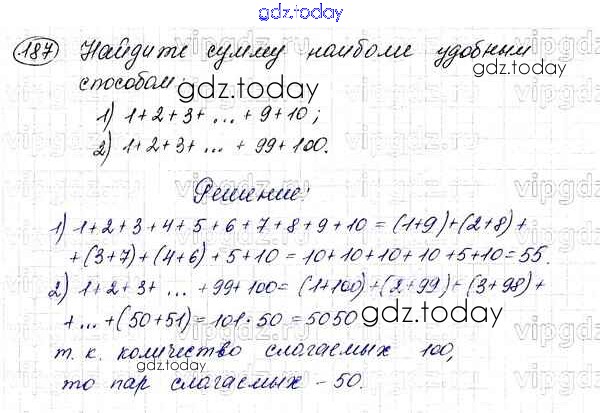 gdz.today
187 Найдите сумму наиболе удобным
способом:
1) 1+2+3+ ... +9+10;
2) 1+2+3+ ... +99+100.
Решение:
1) 1+2+3+4+5+6+7+8+9+10=(1+9)+(2+8)+
+(3+7)+(4+6)+5+10=10+10+10+10+5+10=55.
2) 1+2+3+ ... +99+100=(1+100)+(2+99)+(3+98)+
+...+(50+51)=101·50=5050
т. к. количество слагаемых 100,
то пар слагаемых – 50.
gdz.today
gdz.today
gdz.today
gdz.today
gdz.today